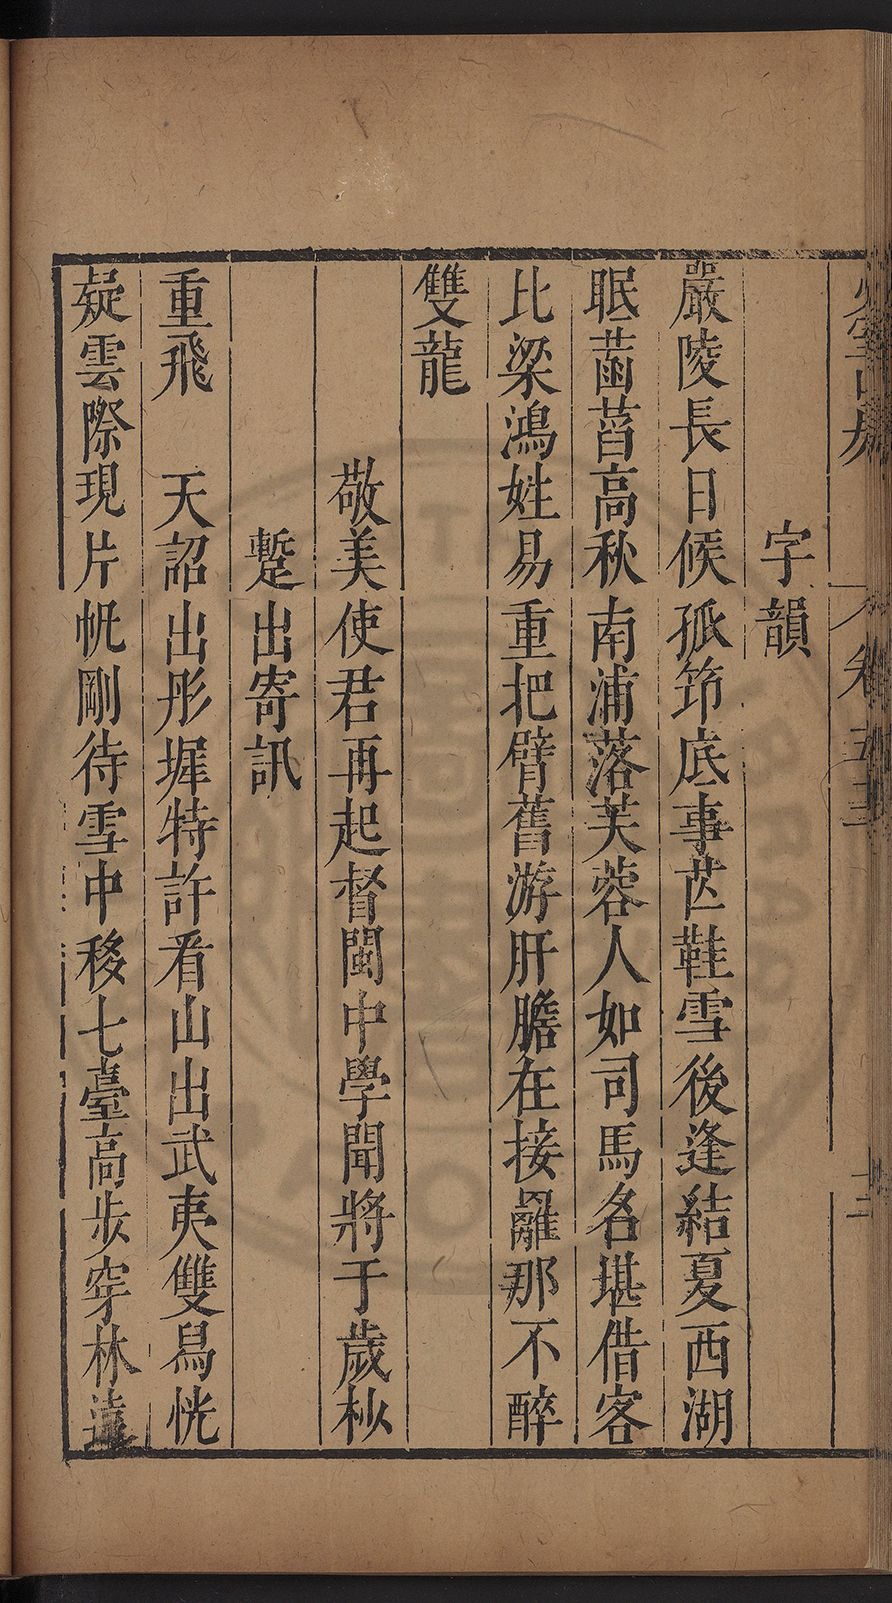 字韻
嚴陵長日候孤笻底事芒鞋雪後逢結夏西湖
眠菡萏高秋南浦落芙蓉人如司馬名堪借客
比梁鴻姓易重把臂舊游肝膽在接䍦那不醉
雙龍
敬美使君再起督閩中學聞將于歲杪
蹔出寄訊
重飛　天詔出彤墀特許看山出武夷雙舄恍
疑雲際現片帆剛待雪中移七臺高步穿林遠
卷五十三